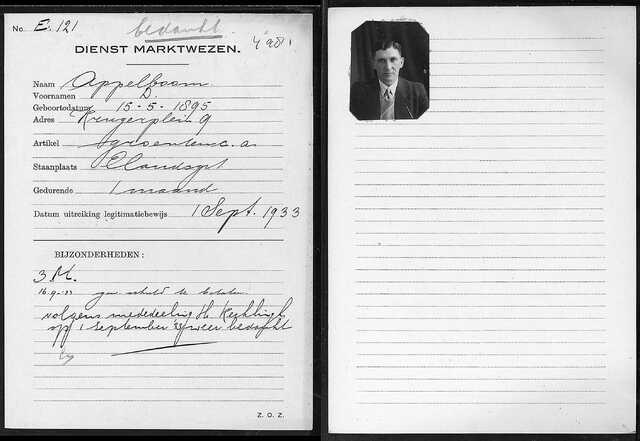 No. E. 121
bedankt
DIENST MARKTWEZEN.
Naam Appelboom
Voornamen D.
Geboortedatum 15-5-1895
Adres Krugerplein 9
Artikel groenten c.a.
Staanplaats Elandsgt
Gedurende 1 maand
Datum uitreiking legitimatiebewijs 1 Sept. 1933
BIJZONDERHEDEN:
3 M.
16-9-33 geen schuld te betalen
volgens mededeeling Hr
op 1 September '33 weer bedankt
Z. O. Z.